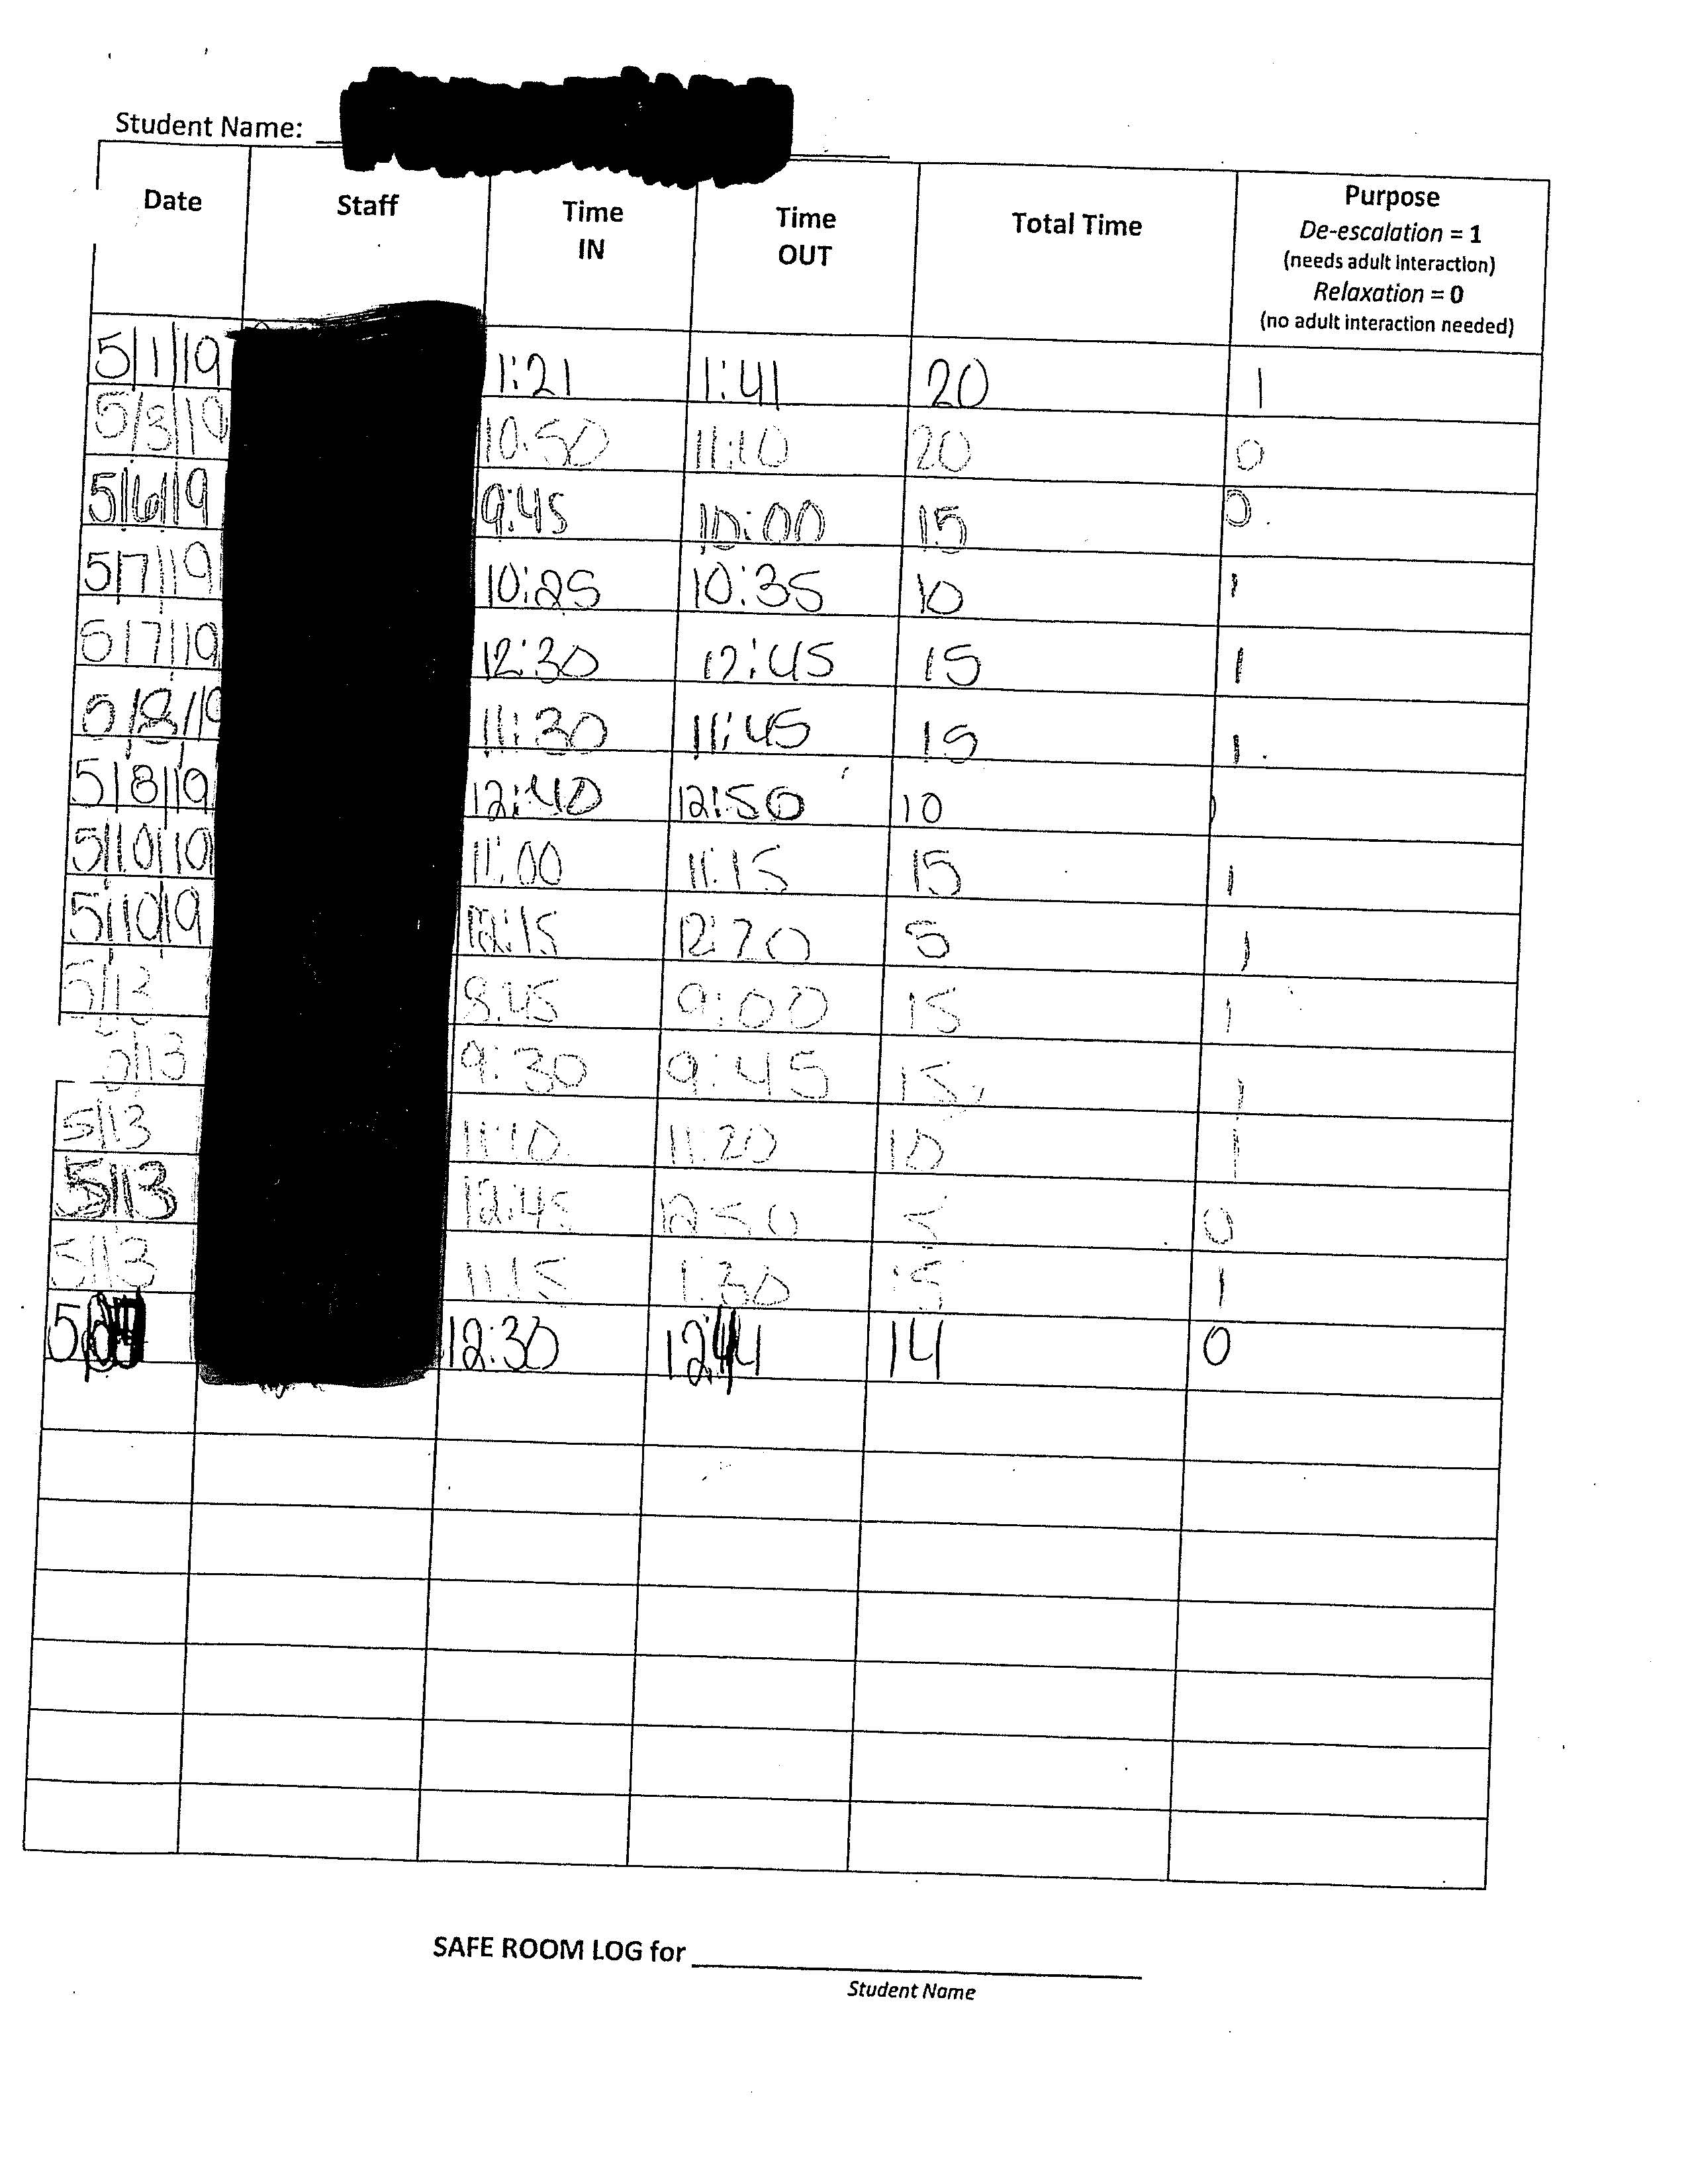 Student Name:
Date Staff Time IN Time OUT Total Time Purpose
De-escalation = 1
(needs adult interaction)
Relaxation = 0
(no adult interaction needed)
5/1/19 1:21 1:41 20 1
5/3/19 10:50 11:10 20 0
5/6/19 9:45 10:00 15 0
5/7/19 10:25 10:35 10 1
5/7/19 12:30 12:45 15 1
5/8/19 11:30 11:45 15 1
5/8/19 12:40 12:50 10 1
5/10/19 11:00 11:15 15 1
5/10/19 12:15 12:20 5 1
5/13 8:45 9:00 15 1
5/13 9:30 9:45 15 1
5/13 11:10 11:20 10 1
5/13 12:45 12:50 5 0
5/13 1:30 15 1
12:30 12:44 14 0
SAFE ROOM LOG for
Student Name